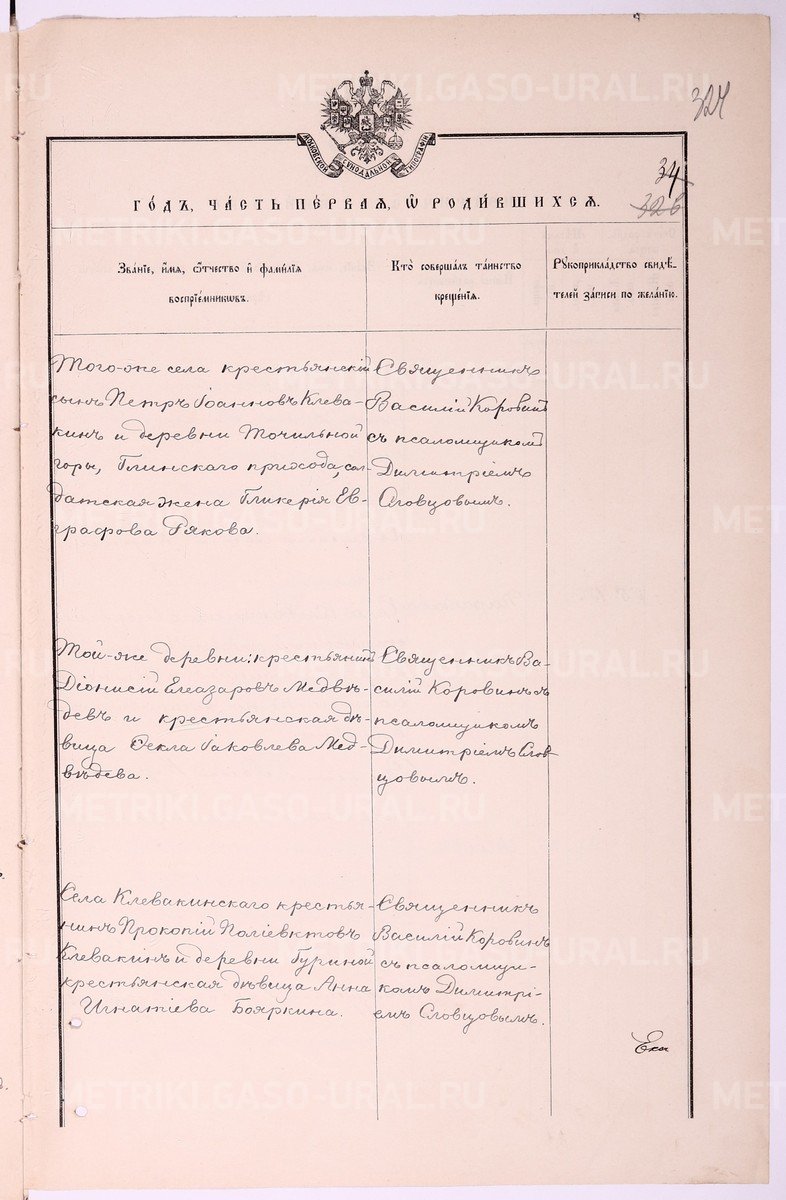 324
МОСКОВСКОЙ СѴНОДАЛЬНОЙ ТИПОГРАФІИ
34
326
ГО́ДЪ, ЧА́СТЬ ПЕ́РВАЯ, Ѿ РОДИ́ВШИХСЯ.
Зва́нїе, и҆́мя, ѻ҆́тчество и҆ фами́лїя
воспрїе́мникѡвъ.
Кто̀ соверша́лъ та́инство
креще́нїя.
Рꙋкоприкла́дство свидѣ́-
телей за́писи по жела́нїю.
Того-же села крестьянскій
сынъ Петръ Іоанновъ Клева-
кинъ и деревни Точильной
горы, Глинскаго прихода, сол-
датская жена Гликерія Ев-
графова Рякова.
Священникъ
Василій Коровинъ
съ псаломщикомъ
Димитріемъ
Словцовымъ.
Той-же деревни: крестьянинъ
Діонисій Елеазаровъ Медвѣ-
девъ и крестьянская дѣ-
вица Ѳекла Іаковлева Мед-
вѣдева.
Священникъ Ва-
силій Коровинъ съ
псаломщикомъ
Димитріемъ Слов-
цовымъ.
Села Клевакинскаго крестья-
нинъ Прокопій Поліевктовъ
Клевакинъ и деревни Гуриной
крестьянская дѣвица Анна
Игнатіева Бояркина.
Священникъ
Василій Коровинъ
съ псаломщи-
комъ Димитрі-
емъ Словцовымъ.
METRIKI.GASO-URAL.RU